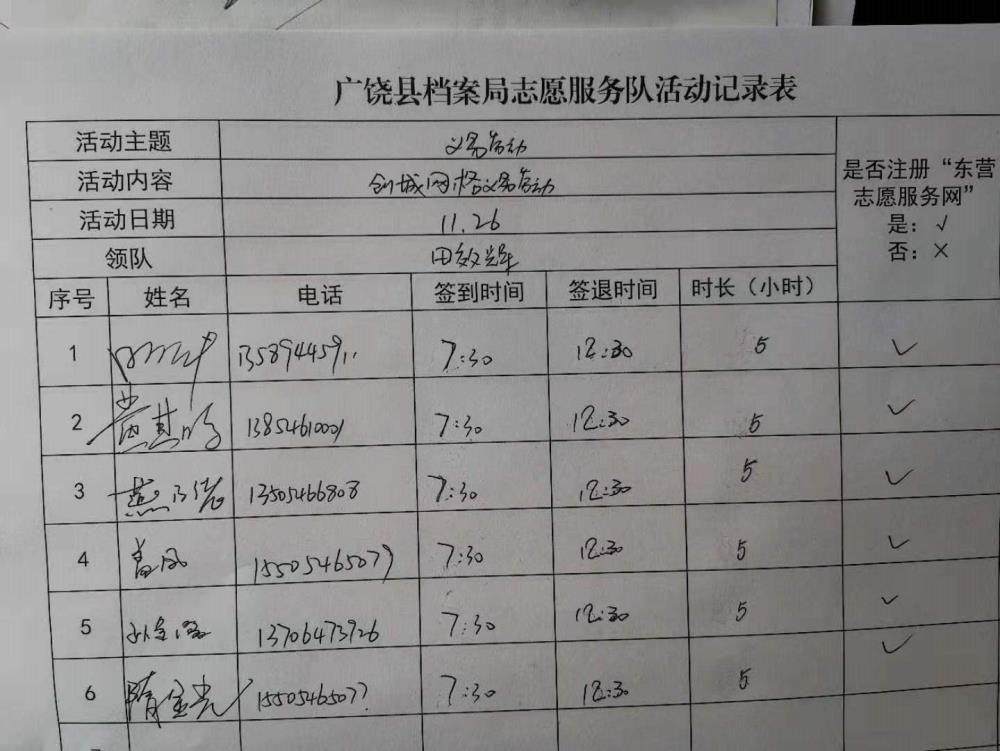 广饶县档案局志愿服务队活动记录表
活动主题 义务劳动
活动内容 创城网格义务劳动
活动日期 11.26
领队 田效辉
是否注册“东营
志愿服务网”
是：√
否：×
序号 姓名 电话 签到时间 签退时间 时长（小时）
1 7:30 12:30 5 ✓
2 13854610001 7:30 12:30 5 ✓
3 13505466808 7:30 12:30 5 ✓
4 15505465079 7:30 12:30 5 ✓
5 13706473926 7:30 12:30 5 ✓
6 7:30 12:30 5 ✓